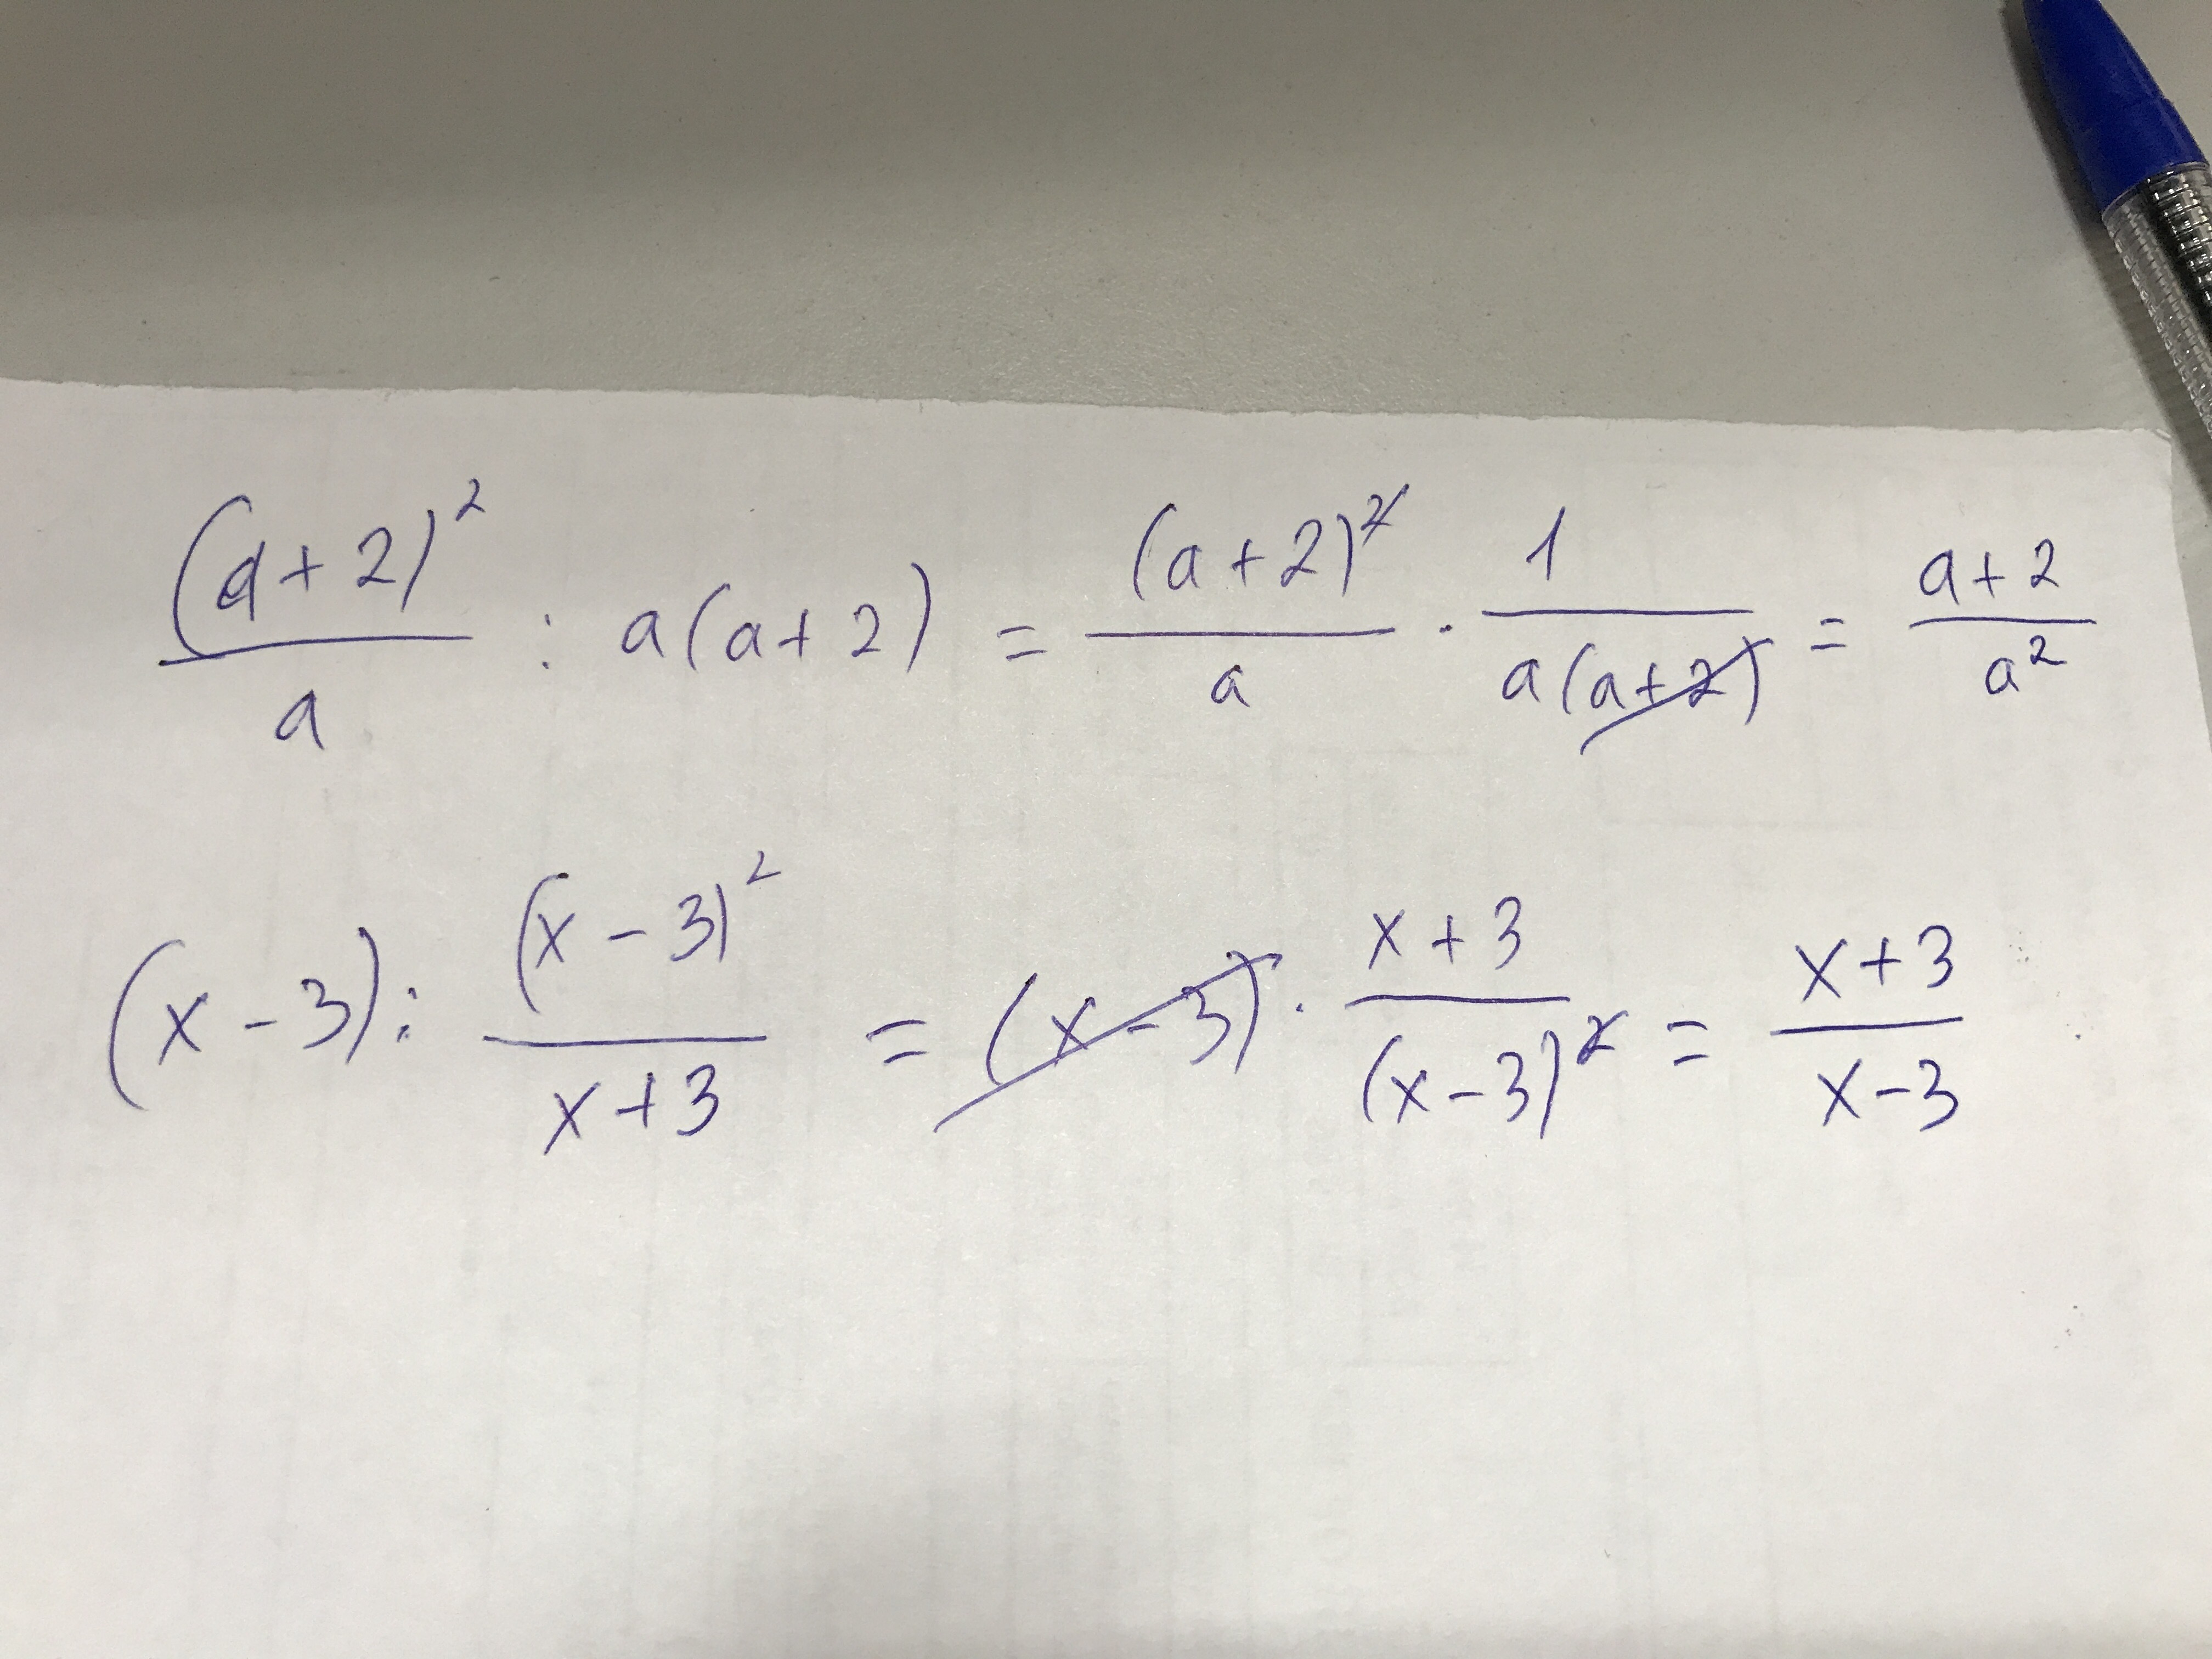 (a+2)²/a : a(a+2) = (a+2)²/a · 1/a(a+2) = a+2/a²
(x-3) : (x-3)²/x+3 = (x-3) · x+3/(x-3)² = x+3/x-3